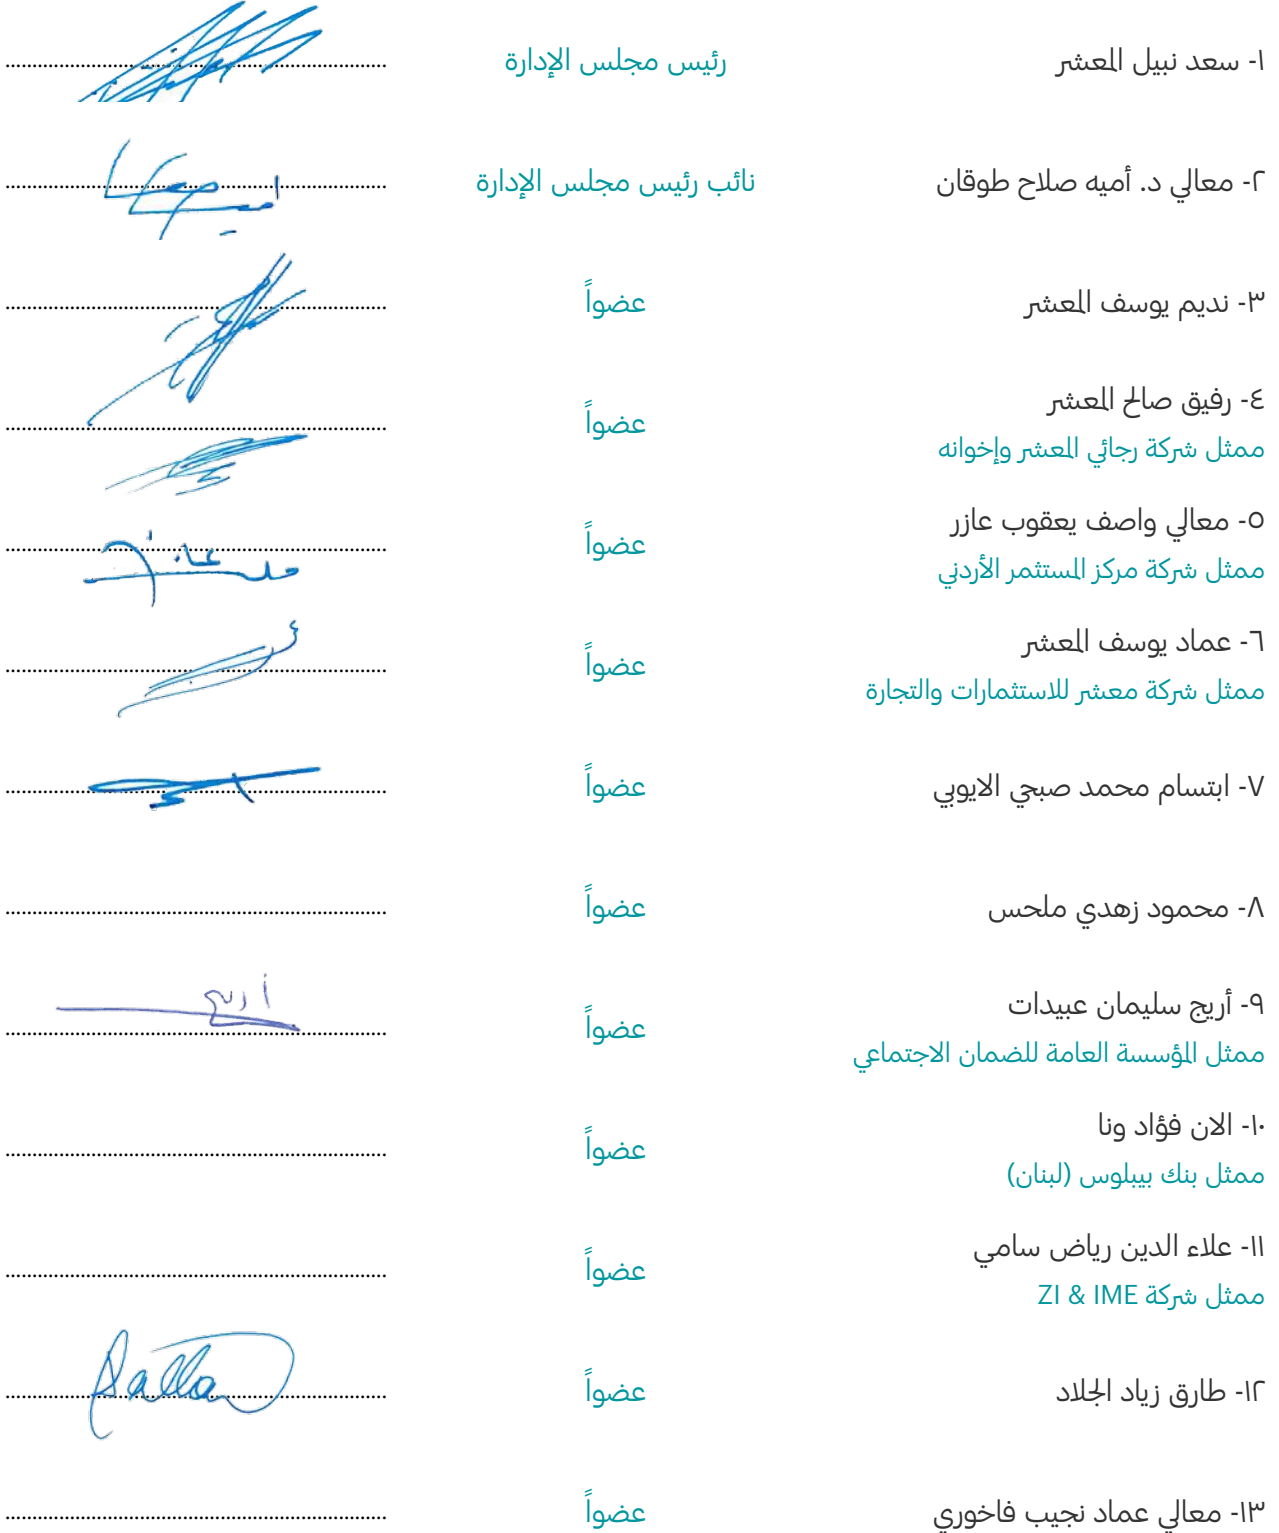 ١- سعد نبيل المعشر رئيس مجلس الإدارة
٢- معالي د. أميه صلاح طوقان نائب رئيس مجلس الإدارة
٣- نديم يوسف المعشر عضواً
٤- رفيق صالح المعشر عضواً
ممثل شركة رجائي المعشر وإخوانه
٥- معالي واصف يعقوب عازر عضواً
ممثل شركة مركز المستثمر الأردني
٦- عماد يوسف المعشر عضواً
ممثل شركة معشر للاستثمارات والتجارة
٧- ابتسام محمد صبحي الايوبي عضواً
٨- محمود زهدي ملحس عضواً
٩- أريج سليمان عبيدات عضواً
ممثل المؤسسة العامة للضمان الاجتماعي
١٠- الان فؤاد ونا عضواً
ممثل بنك بيبلوس (لبنان)
١١- علاء الدين رياض سامي عضواً
ممثل شركة ZI & IME
١٢- طارق زياد الجلاد عضواً
١٣- معالي عماد نجيب فاخوري عضواً